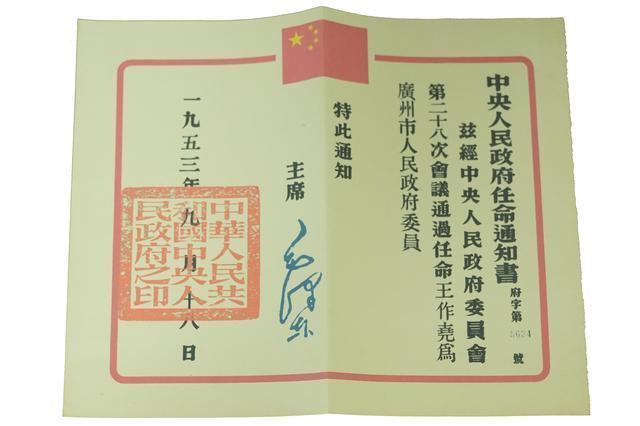 中央人民政府任命通知書
府字第5634號
茲經中央人民政府委員會
第二十八次會議通過任命王作堯爲
廣州市人民政府委員
特此通知
主席
毛澤东
一九五三年九月十八日
中華人民共
和國中央人
民政府之印